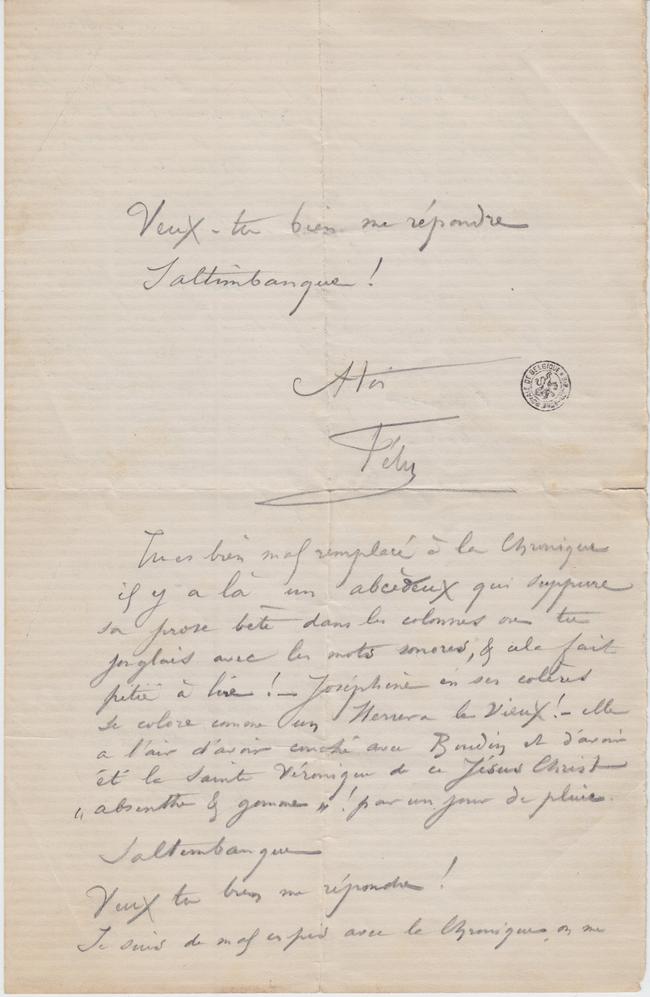 Veux-tu bien me répondre
Saltimbanque !
A toi
BIBLIOTHÈQUE ROYALE DE BELGIQUE
Fély
Tu es bien mal remplacé à la Chronique
il y a là un abcèdeux qui suppure
sa prose bête dans les colonnes où tu
jonglais avec les mots sonores, & cela fait
pitié à lire ! – Joséphine en ses colères
se colore comme un Herrera le Vieux ! – elle
a l'air d'avoir couché avec Boudin et d'avoir
été la Sainte Véronique de ce Jésus Christ
„ absinthe & gomme „ ! par un jour de pluie.
Saltimbanque
Veux tu bien me répondre !
Je suis de mal en pis avec la Chronique, on me